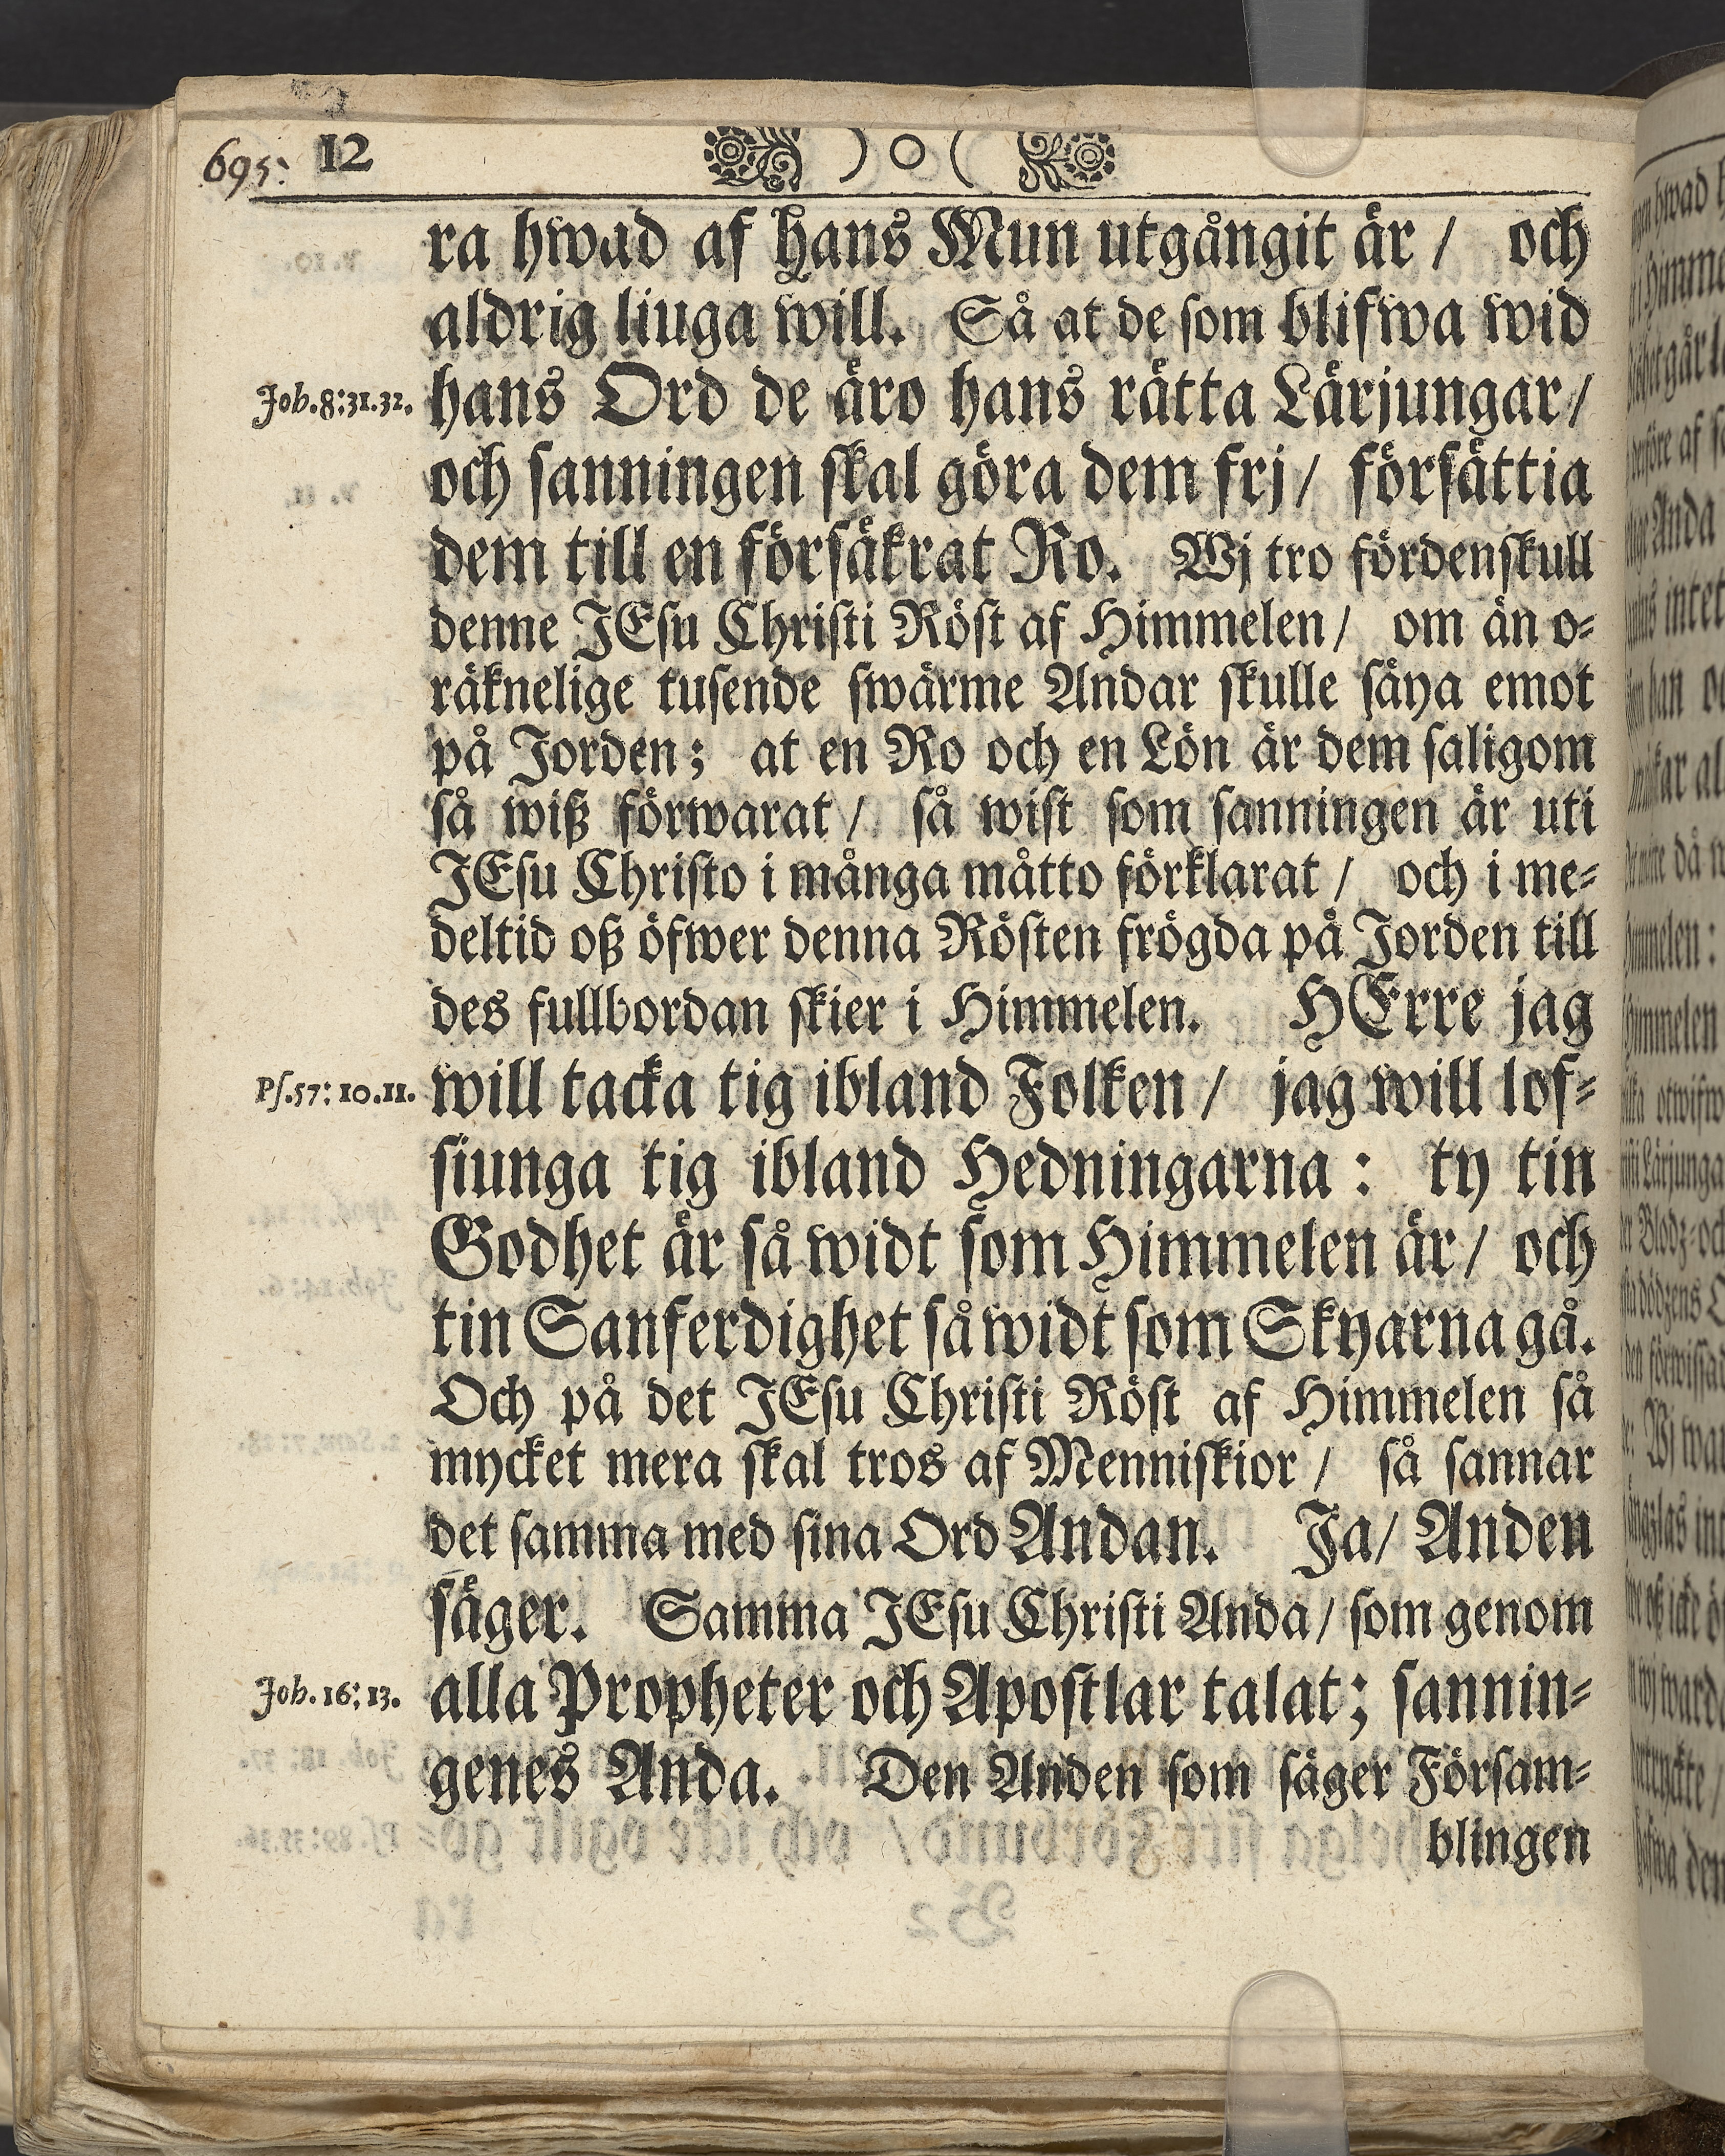 695: 12 ) o (
ra hwad af hans Mun utgångit är / och
aldrig liuga will. Så at de som blifwa wid
Joh. 8: 31. 32. hans Ord de äro hans rätta Lärjungar /
och sanningen skal göra dem frj / försättia
dem till en försäkrat Ro. Wj tro fördenskull
denne JEsu Christi Röst af Himmelen / om än o-
räknelige tusende swärme Andar skulle säya emot
på Jorden; at en Ro och en Lön är dem saligom
så wiß förwarat / så wist som sanningen är uti
JEsu Christo i många måtto förklarat / och i me-
deltid oß öfwer denna Rösten frögda på Jorden till
des fullbordan skier i Himmelen. HErre jag
Ps. 57: 10. 11. will tacka tig ibland Folken / jag will lof-
siunga tig ibland Hedningarna: ty tin
Godhet är så widt som Himmelen är / och
tin Sanferdighet så widt som Skyarna gå.
Och på det JEsu Christi Röst af Himmelen så
mycket mera skal tros af Menniskior / så sannar
det samma med sina Ord Andan. Ja / Anden
säger. Samma JEsu Christi Anda / som genom
Joh. 16: 13. alla Propheter och Apostlar talat; sannin-
genes Anda. Den Anden som säger Försam-
blingen